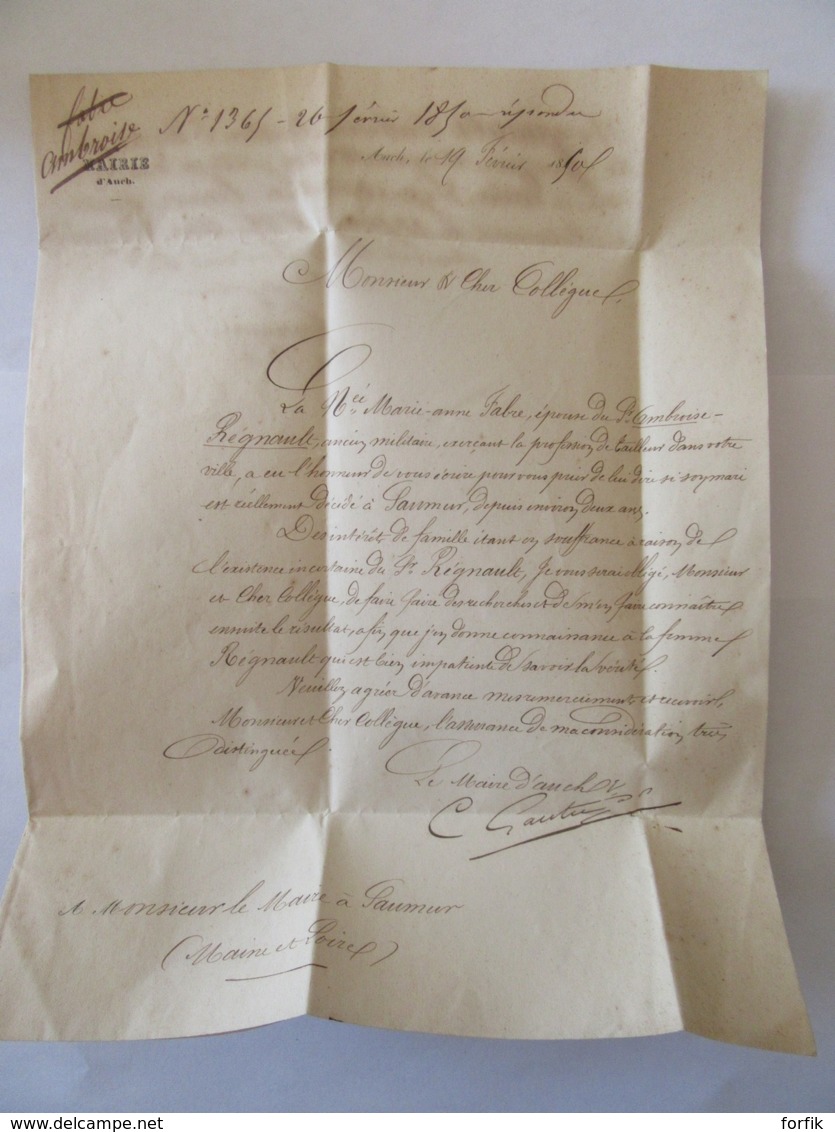 fabre
Ambroise
N° 1365 - 26 février 1850 répondu
MAIRIE
d'Auch.
Auch, le 19 Février 1850
Monsieur & Cher Collègue,
La N.ée Marie-anne Fabre, épouse du Sr. Ambroise-
Régnault, ancien militaire, exerçant la profession de tailleur dans votre
ville, a eu l'honneur de vous écrire pour vous prier de lui dire si son mari
est réellement décédé à Saumur, depuis environ deux ans.
Des intérêts de famille étant en souffrance à raison de
l'existence incertaine du Sr. Régnault, Je vous serai obligé, Monsieur
et Cher Collègue, de faire faire des recherches et de m'en faire connaître
ensuite le résultat, afin que j'en donne connaissance à la femme
Régnault qui est bien impatiente de savoir la vérité.
Veuillez agréer d'avance mes remerciements et recevoir,
Monsieur et Cher Collègue, l'assurance de ma considération très
distinguée.
Le Maire d'auch
C
A Monsieur le Maire à Saumur
(Maine et Loire)
delcampe.net
forfik